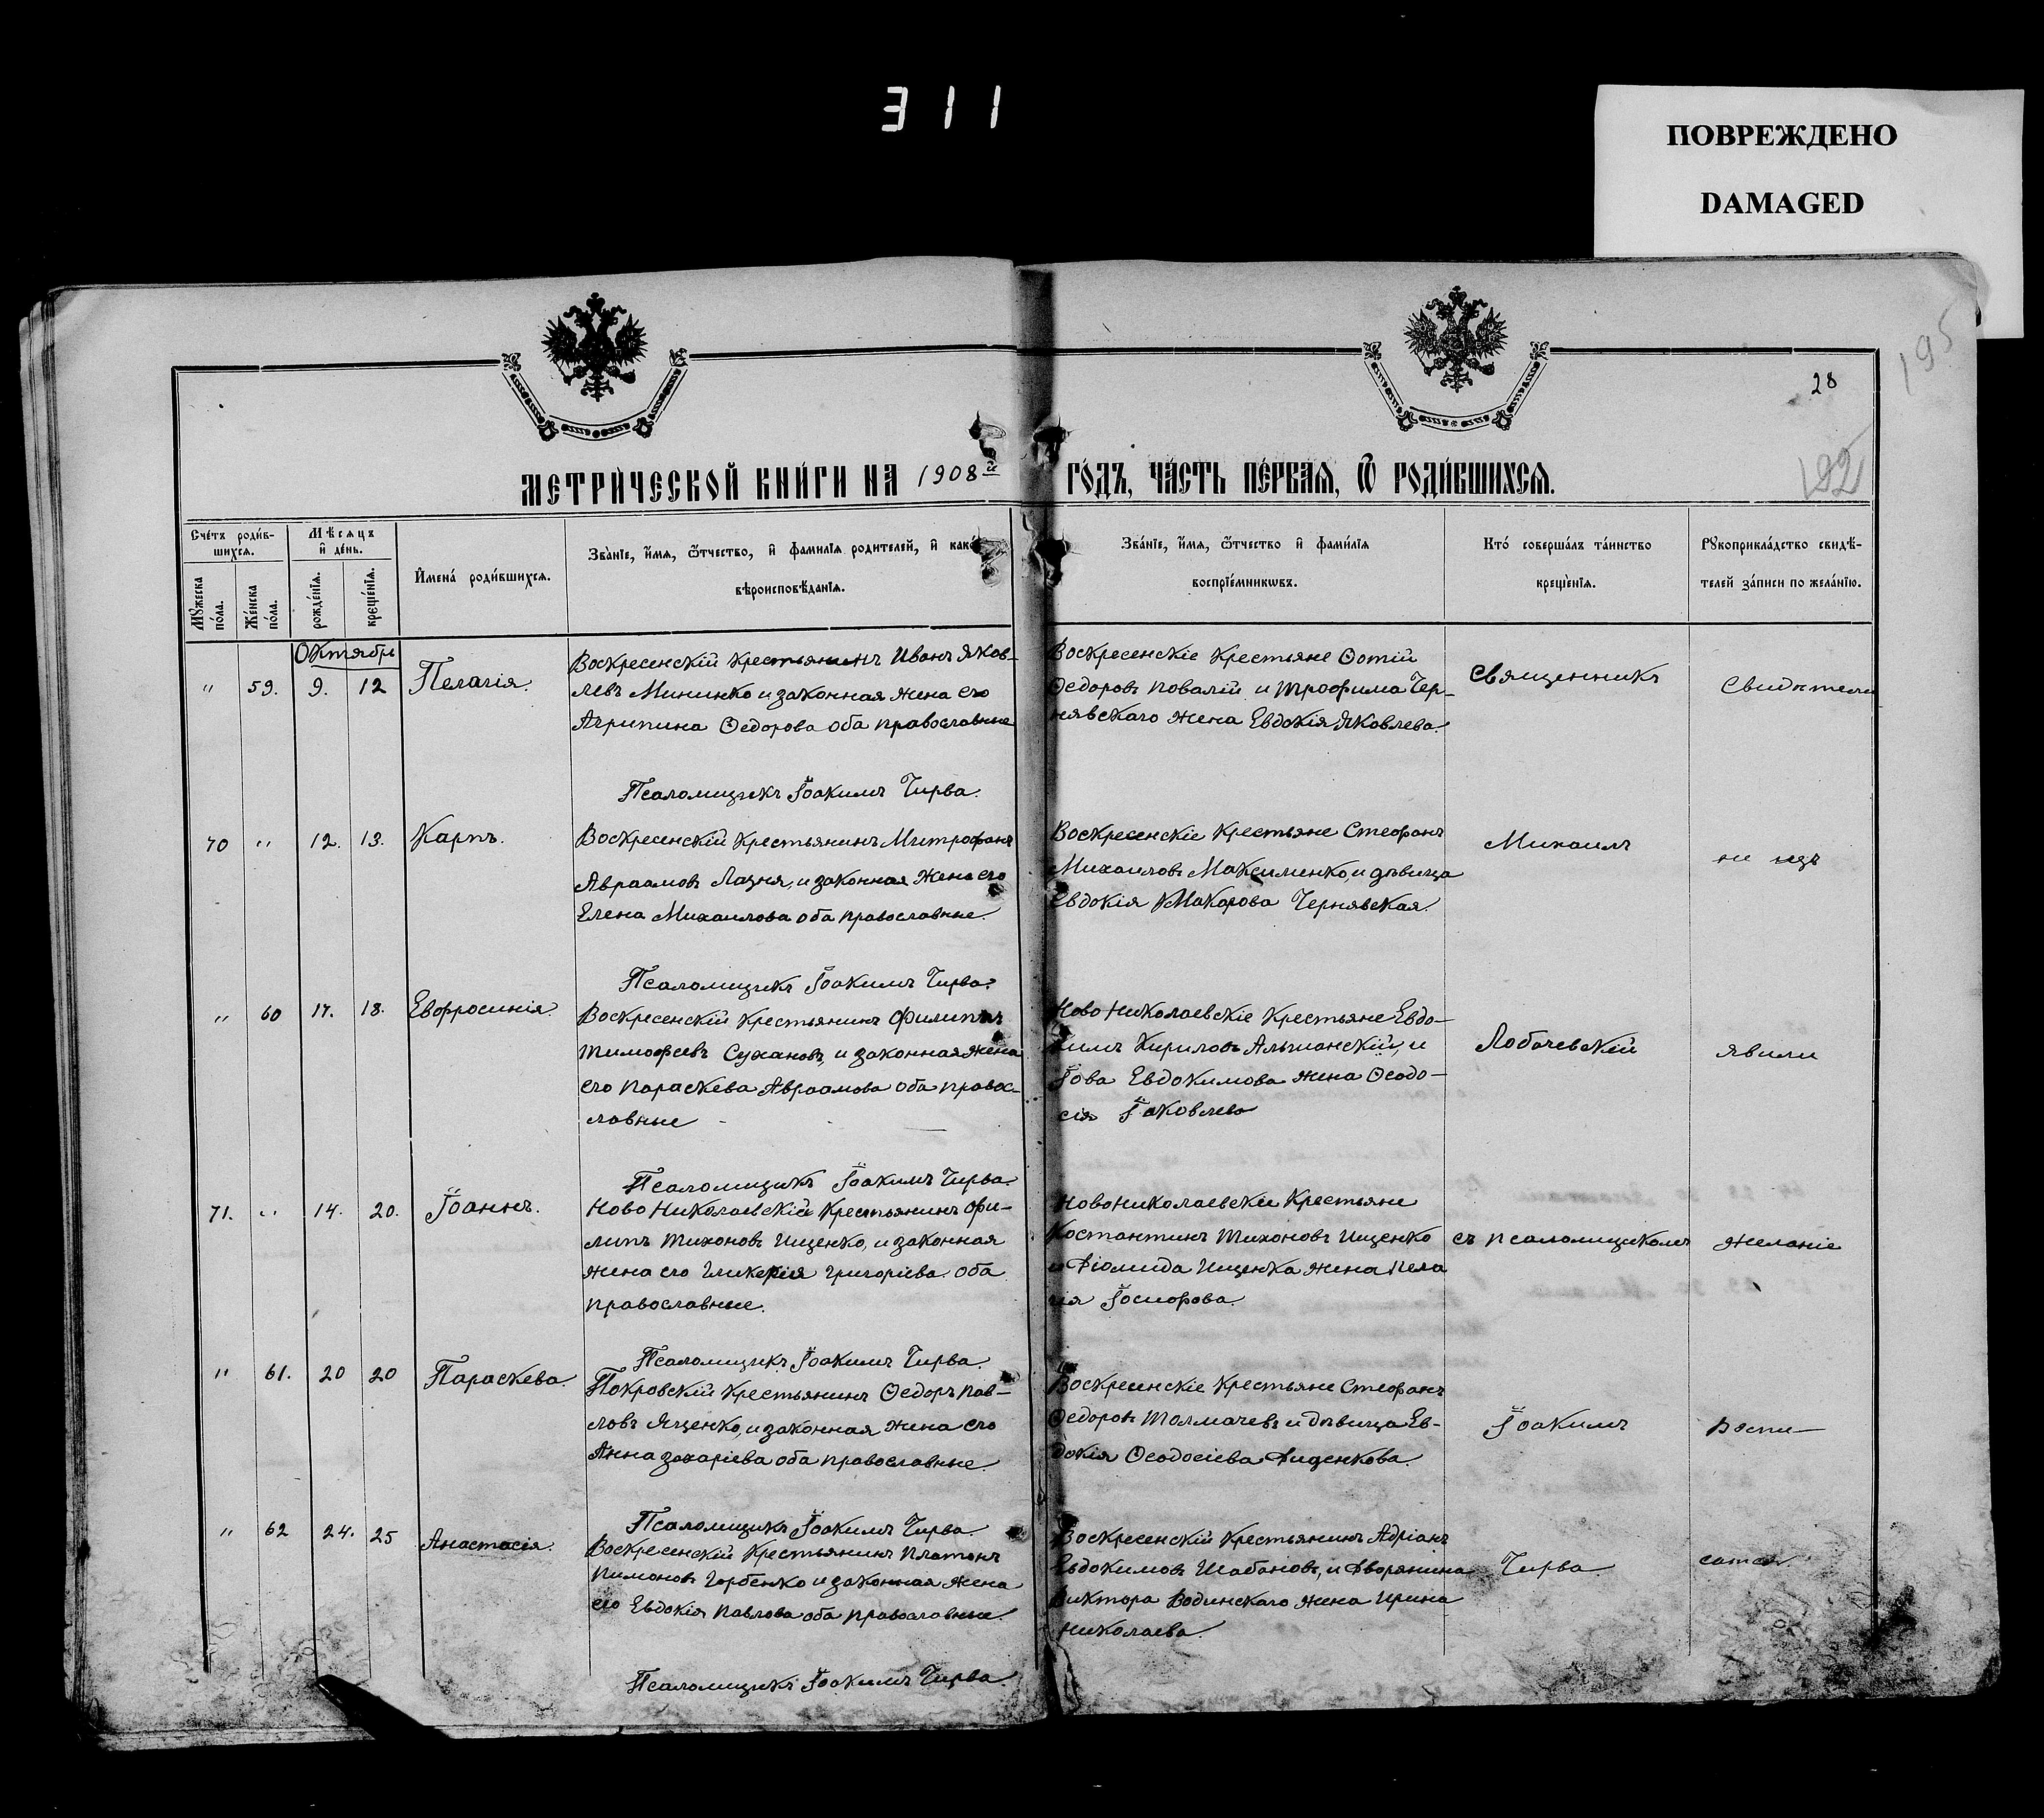 311
ПОВРЕЖДЕНО
DAMAGED
195
28
192
МЕТРИЧЕСКОЙ КНИГИ НА 1908й ГОДЪ, ЧАСТЬ ПЕРВАЯ, Ѿ РОДИВШИХСЯ.
Счетъ родив-
шихся.
Мужеска пола.
Женска пола.
Мѣсяцъ
и день.
рожденія.
крещенія.
Имена родившихся.
Званіе, имя, ѿтчество, и фамилія родителей, и како
вѣроисповѣданія.
Званіе, имя, ѿтчество и фамилія
воспріемниковъ.
Кто совершалъ таинство
крещенія.
Рукоприкладство свидѣ-
телей записи по желанію.
Октябрь
" 59. 9. 12 Пелагія.
Воскресенскій крестьянинъ Иванъ Яков-
левъ Миненко и законная жена его
Агрипина Ѳедорова оба православные
Воскресенскіе крестьяне Ѳотій
Ѳедоровъ Повалій и Трофима Чер-
нявскаго жена Евдокія Яковлева.
Священникъ
Свидѣтели
Псаломщикъ Іоакимъ Чирва.
70 " 12. 13. Карпъ.
Воскресенскій крестьянинъ Митрофанъ
Авраамовъ Лазня, и законная жена его
Елена Михаилова оба православные.
Воскресенскіе крестьяне Стефанъ
Михаиловъ Максименко, и дѣвица
Евдокія Макарова Чернявская.
Михаилъ
не изъ
Псаломщикъ Іоакимъ Чирва.
" 60 17. 18. Евфросинія.
Воскресенскій крестьянинъ Филиппъ
Тимофеевъ Сухановъ, и законная жена
его Параскева Авраамова оба правос-
лавные
Ново Николаевскіе крестьяне Евдо-
кимъ Кириловъ Альшанскій, и
Іова Евдокимова жена Ѳеодо-
сія Іаковлева
Лобачевскій
явили
Псаломщикъ Іоакимъ Чирва.
71. " 14. 20. Іоаннъ.
Ново Николаевскій крестьянинъ Фи-
липъ Тихоновъ Ищенко, и законная
жена его Гликерія Григоріева оба
православные.
Ново Николаевскіе крестьяне
Костантинъ Тихоновъ Ищенко
и Діомида Ищенка жена Пела
гія
съ псаломщикомъ
желаніе
Псаломщикъ Іоакимъ Чирва.
" 61. 20 20 Параскева.
Покровскій крестьянинъ Ѳедоръ Пав-
ловъ Яценко, и законная жена его
Анна Захаріева оба православные.
Воскресенскіе крестьяне Стефанъ
Ѳедоровъ Толмачевъ и дѣвица Ев-
докія Ѳеодосіева Диденкова.
Іоакимъ
роспи-
Псаломщикъ Іоакимъ Чирва.
" 62 24. 25 Анастасія.
Воскресенскій крестьянинъ Платонъ
Пимоновъ Горбенко и законная жена
его Евдокія Павлова оба православные.
Воскресенскій крестьянинъ Адріанъ
Евдокимовъ Шабановъ, и дворянина
Виктора Водинскаго жена Ирина
Николаева.
Чирва
саться.
Псаломщикъ Іоакимъ Чирва.